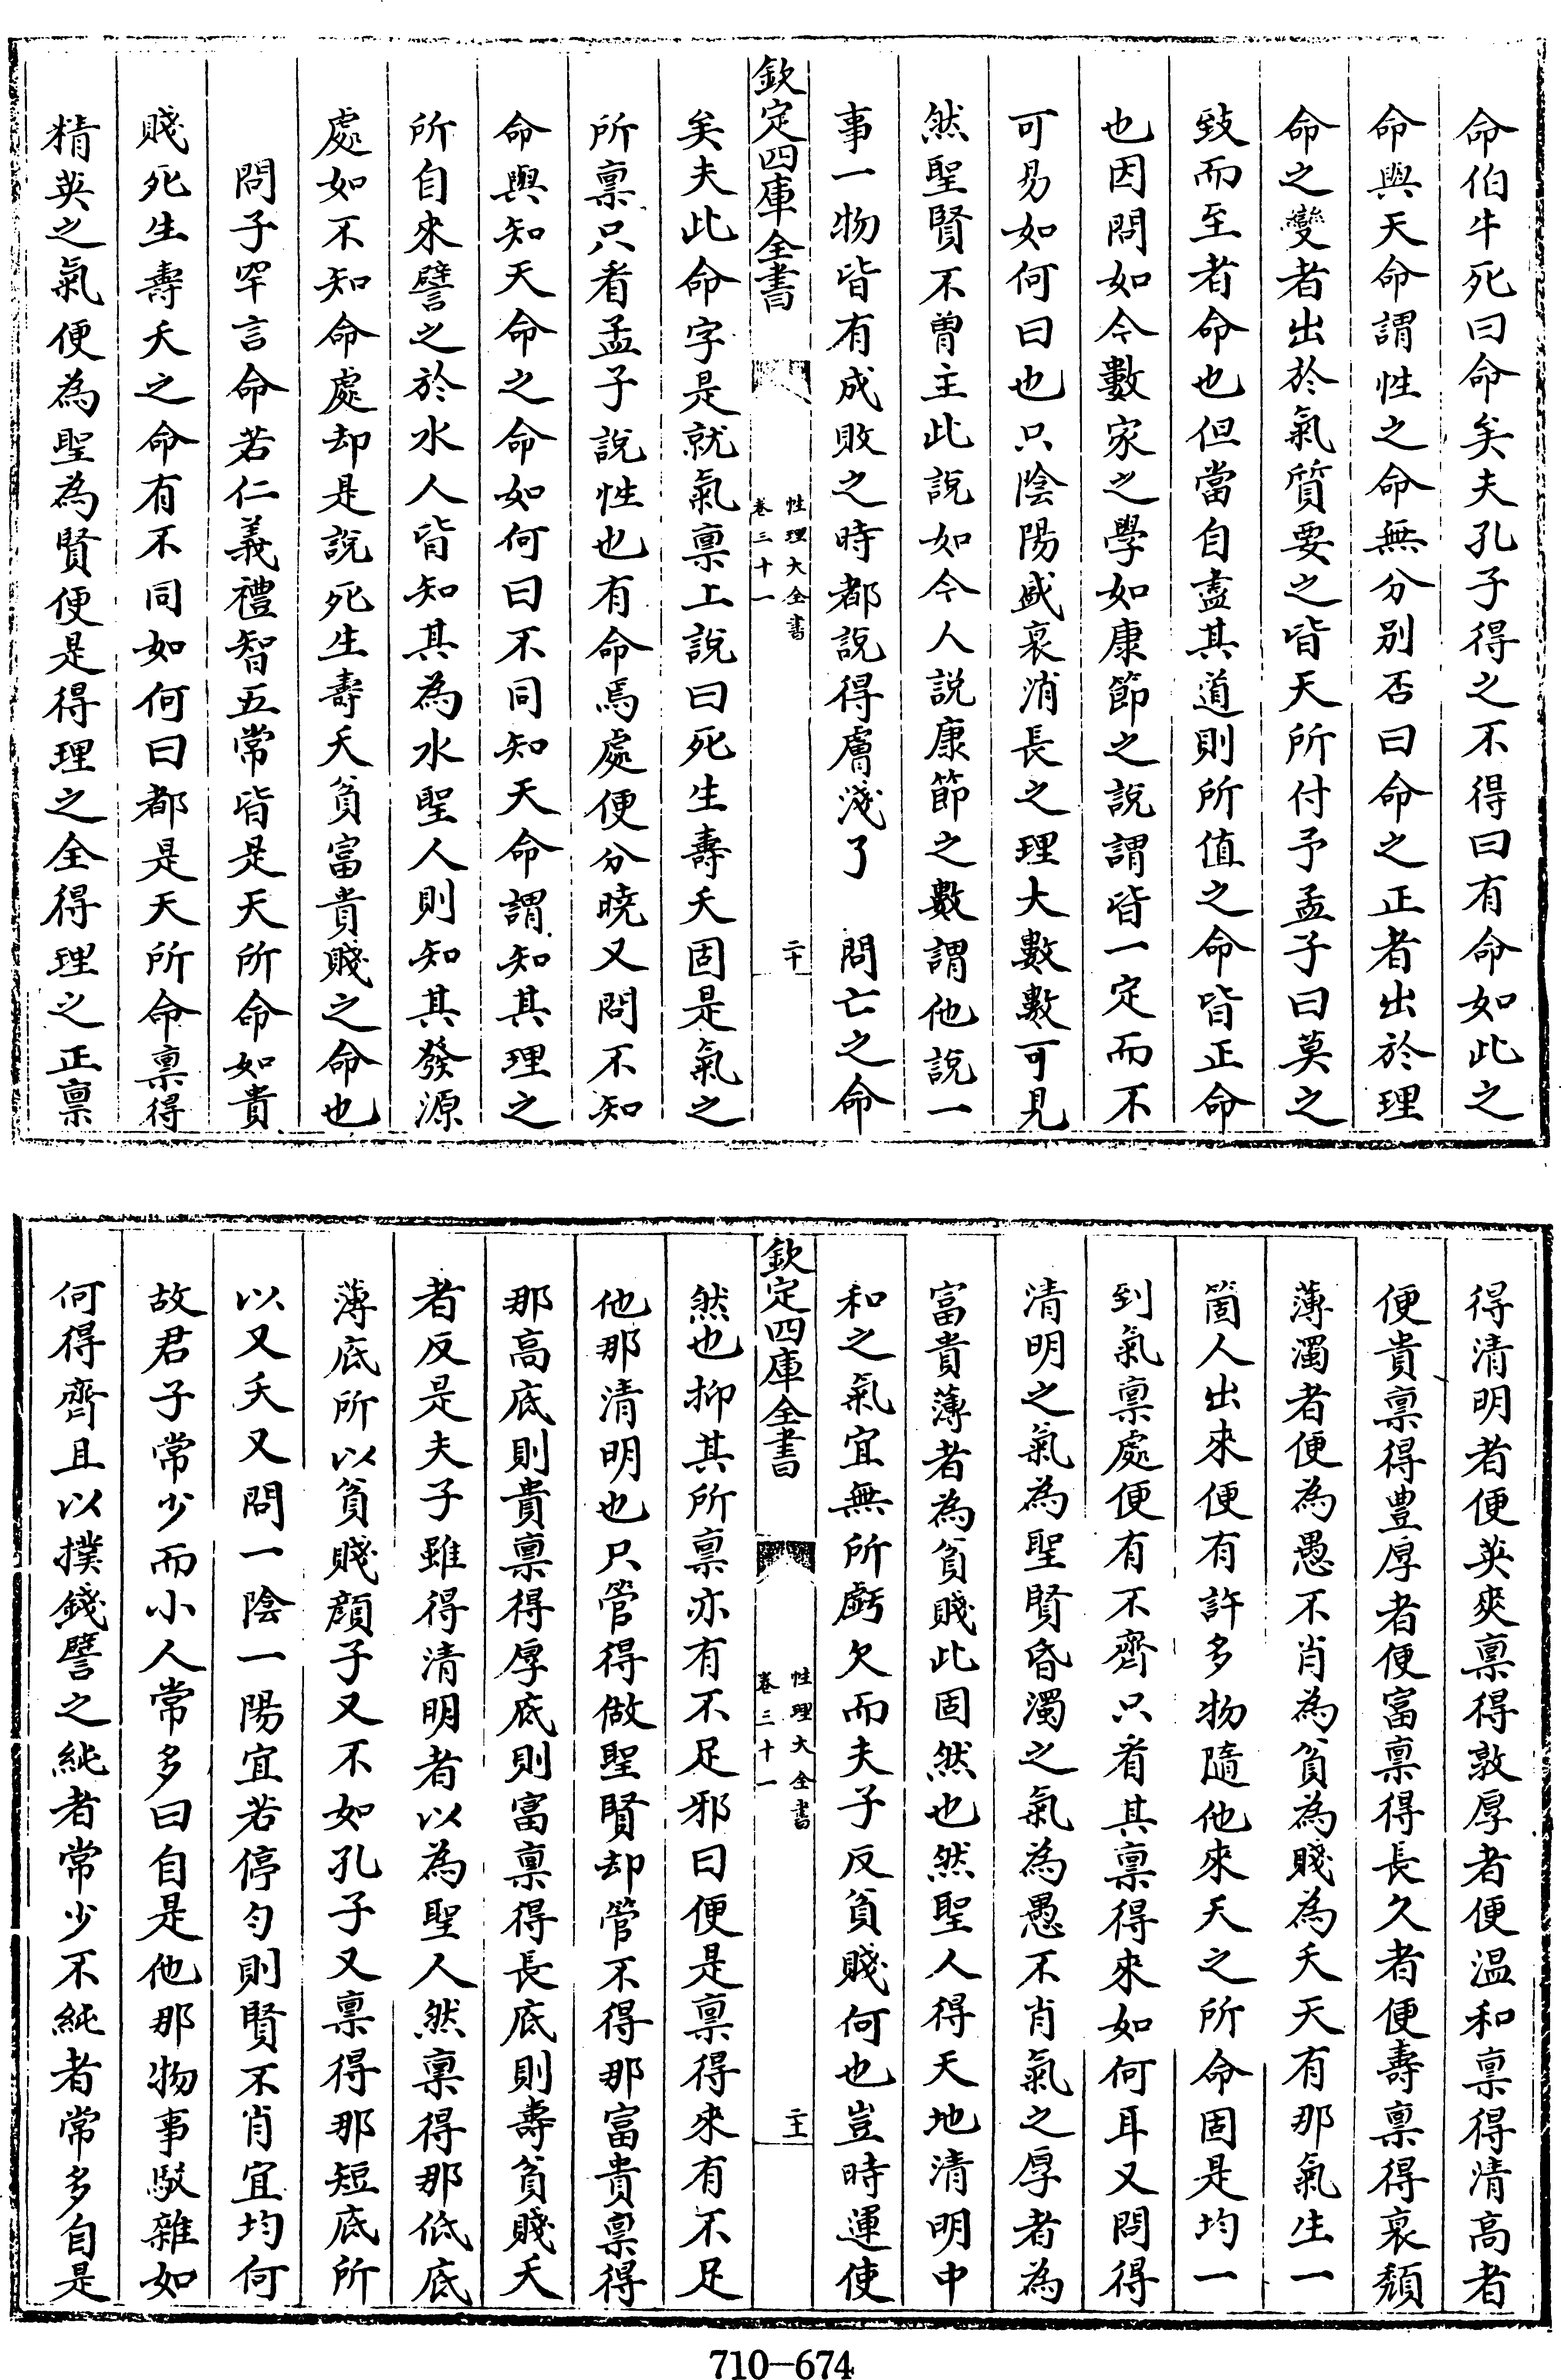 命伯牛死曰命矣夫孔子得之不得曰有命如此之
命與天命謂性之命無分别否曰命之正者出於理
命之變者出於氣質要之皆天所付予孟子曰莫之
致而至者命也但當自盡其道則所值之命皆正命
也因問如今數家之學如康節之説謂皆一定而不
可易如何曰也只陰陽盛衰消長之理大數數可見
然聖賢不曾主此説如今人説康節之數謂他説一
事一物皆有成敗之時都説得膚淺了　問亡之命
欽定四庫全書
性理大全書
卷三十一
二十
矣夫此命字是就氣禀上説曰死生壽夭固是氣之
所禀只看孟子説性也有命焉處便分曉又問不知
命與知天命之命如何曰不同知天命謂知其理之
所自來譬之於水人皆知其為水聖人則知其發源
處如不知命處却是説死生壽夭貧富貴賤之命也
問子罕言命若仁義禮智五常皆是天所命如貴
賤死生壽夭之命有不同如何曰都是天所命禀得
精英之氣便為聖為賢便是得理之全得理之正禀
得清明者便英爽禀得敦厚者便温和禀得清高者
便貴禀得豐厚者便富禀得長久者便壽禀得衰頹
薄濁者便為愚不肖為貧為賤為夭天有那氣生一
箇人出來便有許多物隨他來天之所命固是均一
到氣禀處便有不齊只看其禀得來如何耳又問得
清明之氣為聖賢昏濁之氣為愚不肖氣之厚者為
富貴薄者為貧賤此固然也然聖人得天地清明中
和之氣宜無所虧欠而夫子反貧賤何也豈時運使
欽定四庫全書
性理大全書
卷三十一
二十一
然也抑其所禀亦有不足邪曰便是禀得來有不足
他那清明也只管得做聖賢却管不得那富貴禀得
那高底則貴禀得厚底則富禀得長底則壽貧賤夭
者反是夫子雖得清明者以為聖人然禀得那低底
薄底所以貧賤顔子又不如孔子又禀得那短底所
以又夭又問一陰一陽宜若停匀則賢不肖宜均何
故君子常少而小人常多曰自是他那物事駁雜如
何得齊且以撲錢譬之純者常少不純者常多自是
710—674